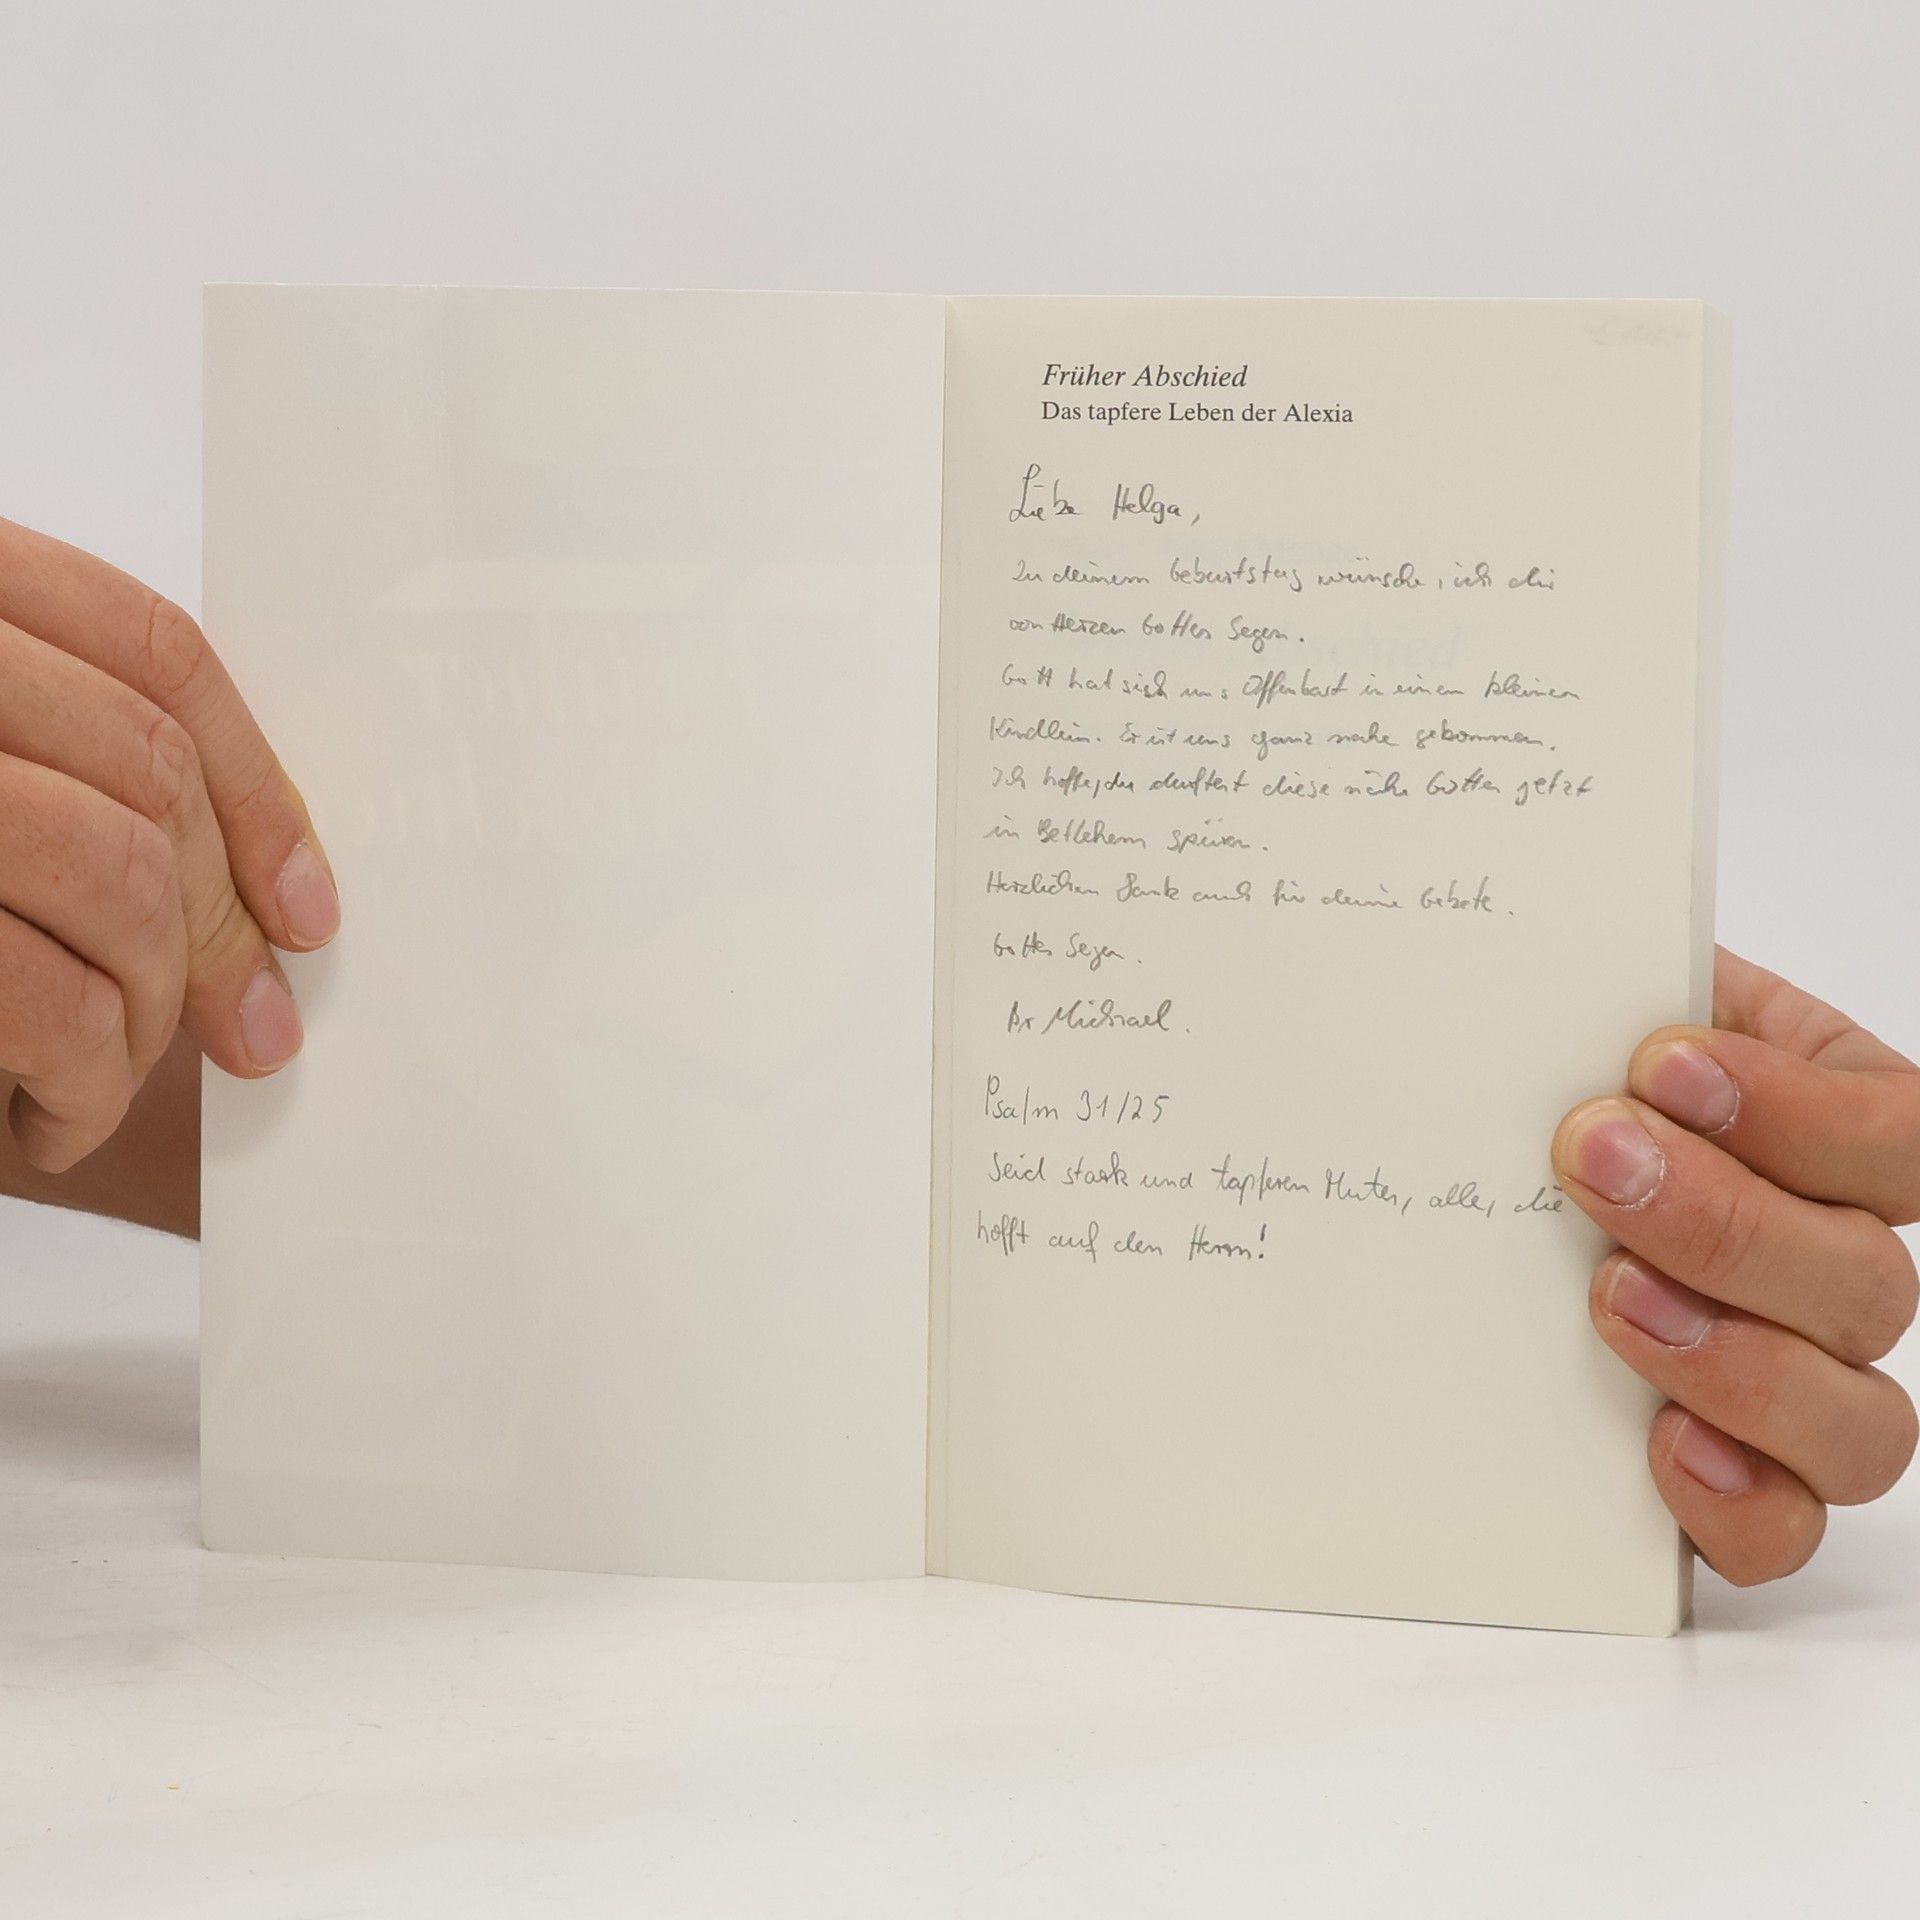 Früher Abschied
Das tapfere Leben der Alexia
Liebe Helga,
Zu deinem Geburtstag wünsche, ich dir
von Herzen Gottes Segen.
Gott hat sich uns Offenbart in einem kleinen
Kindlein. Er ist uns ganz nahe gekommen.
Ich hoffe, du durftest diese nähe Gottes jetzt
in Betlehem spüren.
Herzlichen Dank auch für deine Gebete.
Gottes Segen.
Br Michael.
Psalm 31/25
Seid stark und tapferen Mutes, alle, die
hofft auf den Herrn!